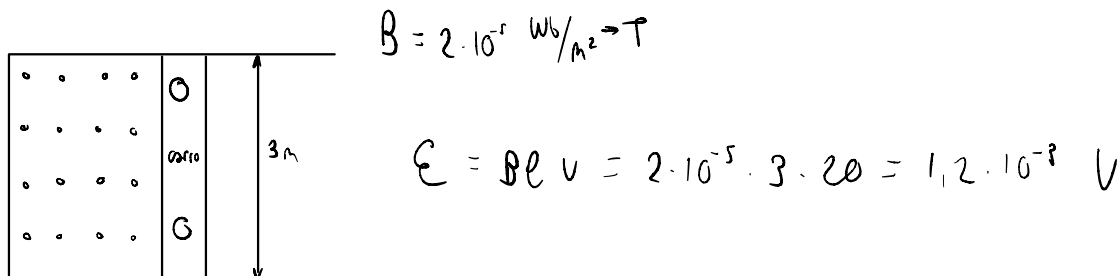 B = 2·10⁻⁵ Wb/m² → T
carro
3m
ε = Bℓv = 2·10⁻⁵·3·20 = 1,2·10⁻³ V